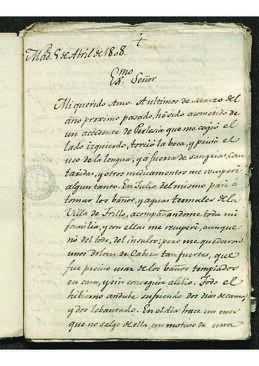 Mad. 5 de Abril de 1808.
Exmo
Señor
Mi querido Amo. A ultimos de Marzo del
año proximo pasado, ha sido acometido de
un accidente de Perlesia que me cogió el
lado izquierdo, torció la boca, y privó el
uso de la lengua, y a fuerza de sangrias, can
taridas, y otros medicamentos me recuperé
algun tanto. En Julio del mismo pasé à
tomar los baños, y aguas termales de la
Villa de Trillo, acompañandome toda mi
familia, y con ellas me recuperé, aunque
no del todo, del insulto; pero me quedaron
unos dolores de Cabeza tan fuertes, que
fue preciso usar de los baños templados
en casa, y sin conseguir alibio. Todo el
hibierno anduve sufriendo dos dias de cama,
y dos lebantado. En el dia hace un mes
que no salgo de ella, con motivo de una